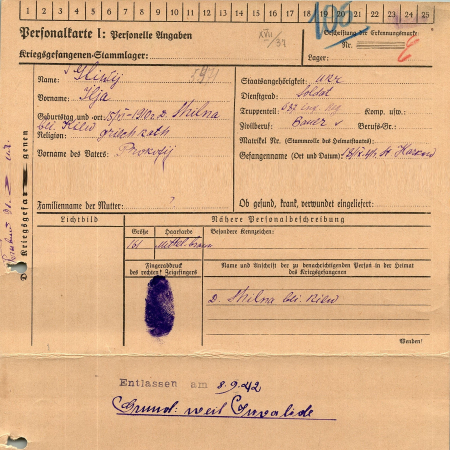 1 2 3 4 5 6 7 8 9 10 11 12 13 14 15 16 17 18 19 20 21 22 23 24 25
Personalkarte I: Personelle Angaben
Kriegsgefangenen-Stammlager:
XVII/39
Beschriftung der Erkennungsmarke
Nr.
Lager:
Des Kriegsgefangenen
Name:
Vorname: Ilja
Geburtstag und -ort: Milna
bei Kiew
Religion: griech. kath
Vorname des Vaters: Prokofij
Familienname der Mutter: ?
Staatsangehörigkeit: Ukr
Dienstgrad: Soldat
Truppenteil: 532 Komp. usw.:
Zivilberuf: Bauer Berufs-Gr.:
Matrikel Nr. (Stammrolle des Heimatstaates):
Gefangennahme (Ort und Datum):
Ob gesund, krank, verwundet eingeliefert:
Lichtbild
Nähere Personalbeschreibung
Größe Haarfarbe Besondere Kennzeichen:
161 Mittel braun
Fingerabdruck
des rechten Zeigefingers
Name und Anschrift der zu benachrichtigenden Person in der Heimat
des Kriegsgefangenen
D. Milna bei Kiew
Entlassen am 8.9.42
Grund: weil Invalide